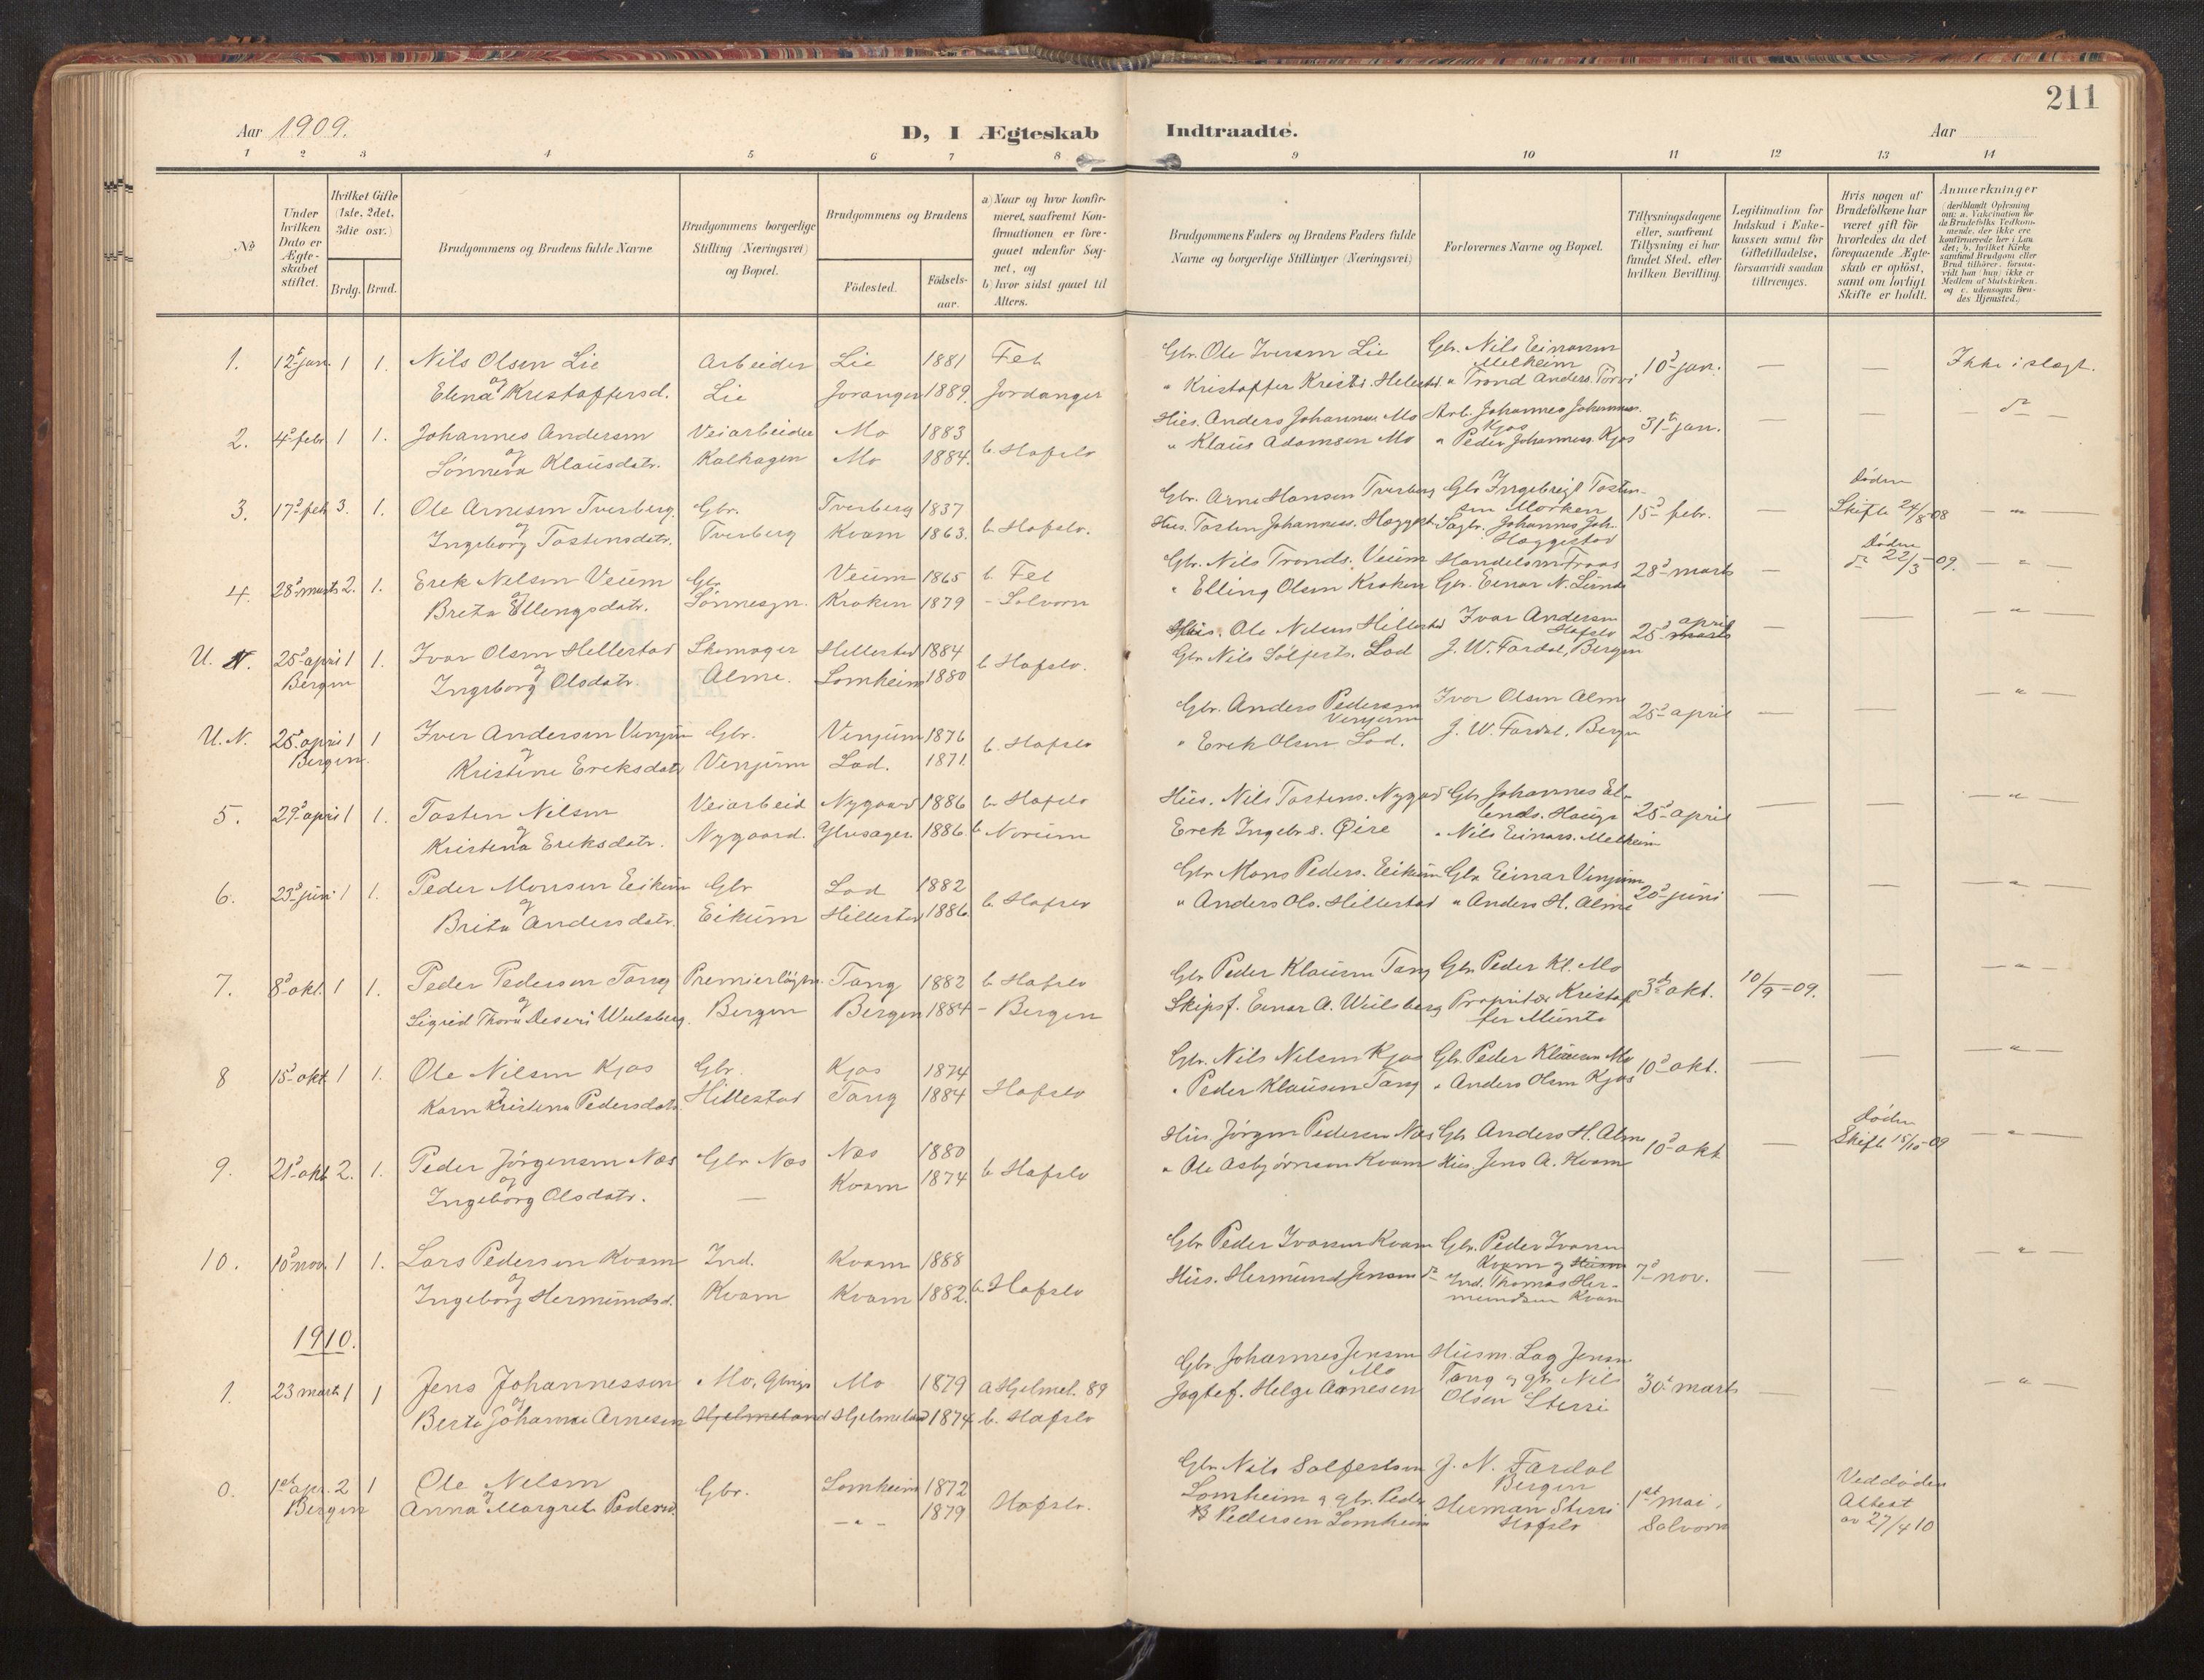 211
Aar 1909.
D, I Ægteskab Indtraadte.
Aar
1 2 3 4 5 6 7 8 9 10 11 12 13 14
No
Under hvilken Dato er Ægteskabet stiftet.
Hvilket Gifte (1ste, 2det, 3die osv.)
Brdg. Brud.
Brudgommens og Brudens fulde Navne
Brudgommens borgerlige Stilling (Næringsvei) og Bopæl.
Brudgommens og Brudens
Födested.
Födselsaar.
a) Naar og hvor konfirmeret, saafremt Konfirmationen er foregaaet udenfor Sognet, og
b) hvor sidst gaaet til Alters.
Brudgommens Faders og Brudens Faders fulde Navne og borgerlige Stillinger (Næringsvei)
Forlovernes Navne og Bopæl.
Tillysningsdagene eller, saafremt Tillysning ei har fundet Sted, efter hvilken Bevilling.
Legitimation for Indskud i Enkekassen samt for Giftetilladelse, forsaavidt saadan tiltrænges.
Hvis nogen af Brudefolkene har været gift för hvorledes da det foregaaende Ægteskab er oplöst, samt om lovligt Skifte er holdt.
Anmærkninger (deriblandt Oplysning om: a. Vakcination for de Brudefolks Vedkommende, der ikke ere konfirmerede her i Landet; b. hvilket Kirkesamfund Brudgom eller Brud tilhører, forsaavidt han (hun) ikke er Medlem af Statskirken, og c. udensogns Brudes Hjemsted.)
1. 12 jan. 1 1. Nils Olsen Lie Arbeider Lie 1881 Fet Gbr. Ole Iversen Lie Gbr. Nils Einarsen Melheim 10 jan. — — Ikke i slægt.
og Elena Kristoffersd. Lie Joranger 1889. Jordanger " Kristoffer Krists. Hillestad " Trond Anders. Torvi
2. 4 febr. 1 1. Johannes Andersen Veiarbeider Mo 1883 b. Hafslo Hus. Anders Johannes. Mo Arb. Johannes Johannes. Kjos 31 jan. — — — do —
og Sønneva Klausdatr. Kalhagen Mo 1884. " Klaus Adamsen Mo " Peder Johannes. Kjos
3. 17 feb. 3. 1. Ole Arnesen Tverberg. Gbr. Tverberg 1837 b. Hafslo. Gbr. Arne Hansen Tverberg Gbr Ingebrigt Tosten- sen Morken 15 febr. — Døden Skifte 24/8-08 — " —
og Ingeborg Tostensdatr. Tverberg Kvam 1863. Hus. Tosten Johanness. Hæggest. Sagbr. Johannes Joh. Hæggestad
4. 28 marts 2. 1. Erik Nelson Veum Gbr Veum 1865 b. Fet Gbr. Nils Tronds. Veum Handelsm Fraas 28 marts — Døden do 22/3-09. — " —
og Brita Ellingsdatr. Sønnesyn. Kroken 1879 - Solvorn " Elling Olsen Kroken Gbr. Einar N. Lunde
U. N. 25 april 1 1. Ivar Olsen Hillestad Skomager Hillestad 1884 b Hafslo. Hus. Ole Nelsen Hillestad Ivar Andersen Hafslo 25 april marts — — — " —
Bergen og Ingeborg Olsdatr. Alme. Lomheim 1880 Gbr Nils Soljests. Lad J. W. Fardal, Bergen
U. N. 25 april 1 1 Iver Andersen Venjum Gbr. Venjum 1876 b. Hafslo Gbr. Anders Pedersen Venjum Ivar Olsen Alme 25 april — — — " —
Bergen. og Kristine Eriksdatr Venjum Lad. 1871. " Erik Olsen Lad. J. W. Fardal, Bergen
5. 29 april 1 1. Tosten Nilsen Veiarbeid Nygaard 1886 b. Hafslo Hus. Nils Tostens. Nygard Gbr Johannes Er- lends. Hauge 25 april — — — " —
og Kristena Eriksdatr. Nygaard. 1886. b Norum Erik Ingebr s. Øire " Nils Einars. Melheim
6. 23 juni 1 1. Peder Monsen Eikum Gbr Lad 1882 b. Hafslo Gbr Mons Peders. Eikum Gbr Einar Venjum 20 juni — — — " —
og Brita Andersdatr. Eikum Hillestad 1886 " Anders Ols. Hillestad " Anders H. Alme
7. 8 okt. 1 1. Peder Pedersen Tang Premierløytn. Tang 1882 b Hafslo Gbr Peder Klausen Tang Gbr Peder Kl. Mo 3 okt. 10/9-09. — — " —
og Sigrid Thora Wulsberg. Bergen Bergen 1884 - Bergen Skipsf. Einar A. Wulsberg Proprietær Kristof- fer Munte
8 15 okt. 1 1. Ole Nilsen Kjos Gbr. Kjos 1874 Hafslo Gbr. Nils Nilsen Kjos Gbr. Peder Klausen Mo 10 okt. — — — " —
og Karn Kristena Pedersdatr. Hillestad Tang 1884 " Peder Klausen Tang " Anders Olsen Kjos
9. 21 okt 2. 1. Peder Jørgensen Næs Gbr Næs Næs 1880 b Hafslo Hus. Jørgen Pedersen Næs Gbr Anders H. Alme 10 okt — Døden Skifte 15/10-09 — " —
og Ingeborg Olsdatr. — Kvam 1874 " Ole Asbjørnsen Kvam Hus Jens A. Kvam
10. 10 nov. 1 1. Lars Pedersen Kvam Ind. Kvam 1888 b. Hafslo Gbr Peder Ivarsen Kvam Gbr. Peder Ivarsen Kvam og Husm 7 nov. — — — " —
og Ingeborg Hermundsd. Kvam Kvam 1882. Hus. Hermund Jensen do Ind. Thomas Her- mundsen Kvam
1910.
1. 23 mart. 1 1 Jens Johannessen Mo, Mo 1879 a Hjelmel. 89 Gbr. Johannes Jensen Mo Husm. Lag Jensen Tang og gbr Nils Olsen Sterri 30 marts — — — " —
og Berte Johanne Arnesen Hjelmeland Hjelmeland 1874 b. Hafslo Jagtef. Helge Arnesen
0. 1st apr. 2 1 Ole Nelsen Gbr. Lomheim 1872 Hafslo. Gbr Nils Solfestsen Lomheim og gbr. Peder Pedersen Lomheim J. N. Fardal Bergen 1st mai, Solvorn Ved døden Attest av 27/4 10
Bergen og Anna Margrete Pedersd. — " — 1879 Herman Sterri Hafslo